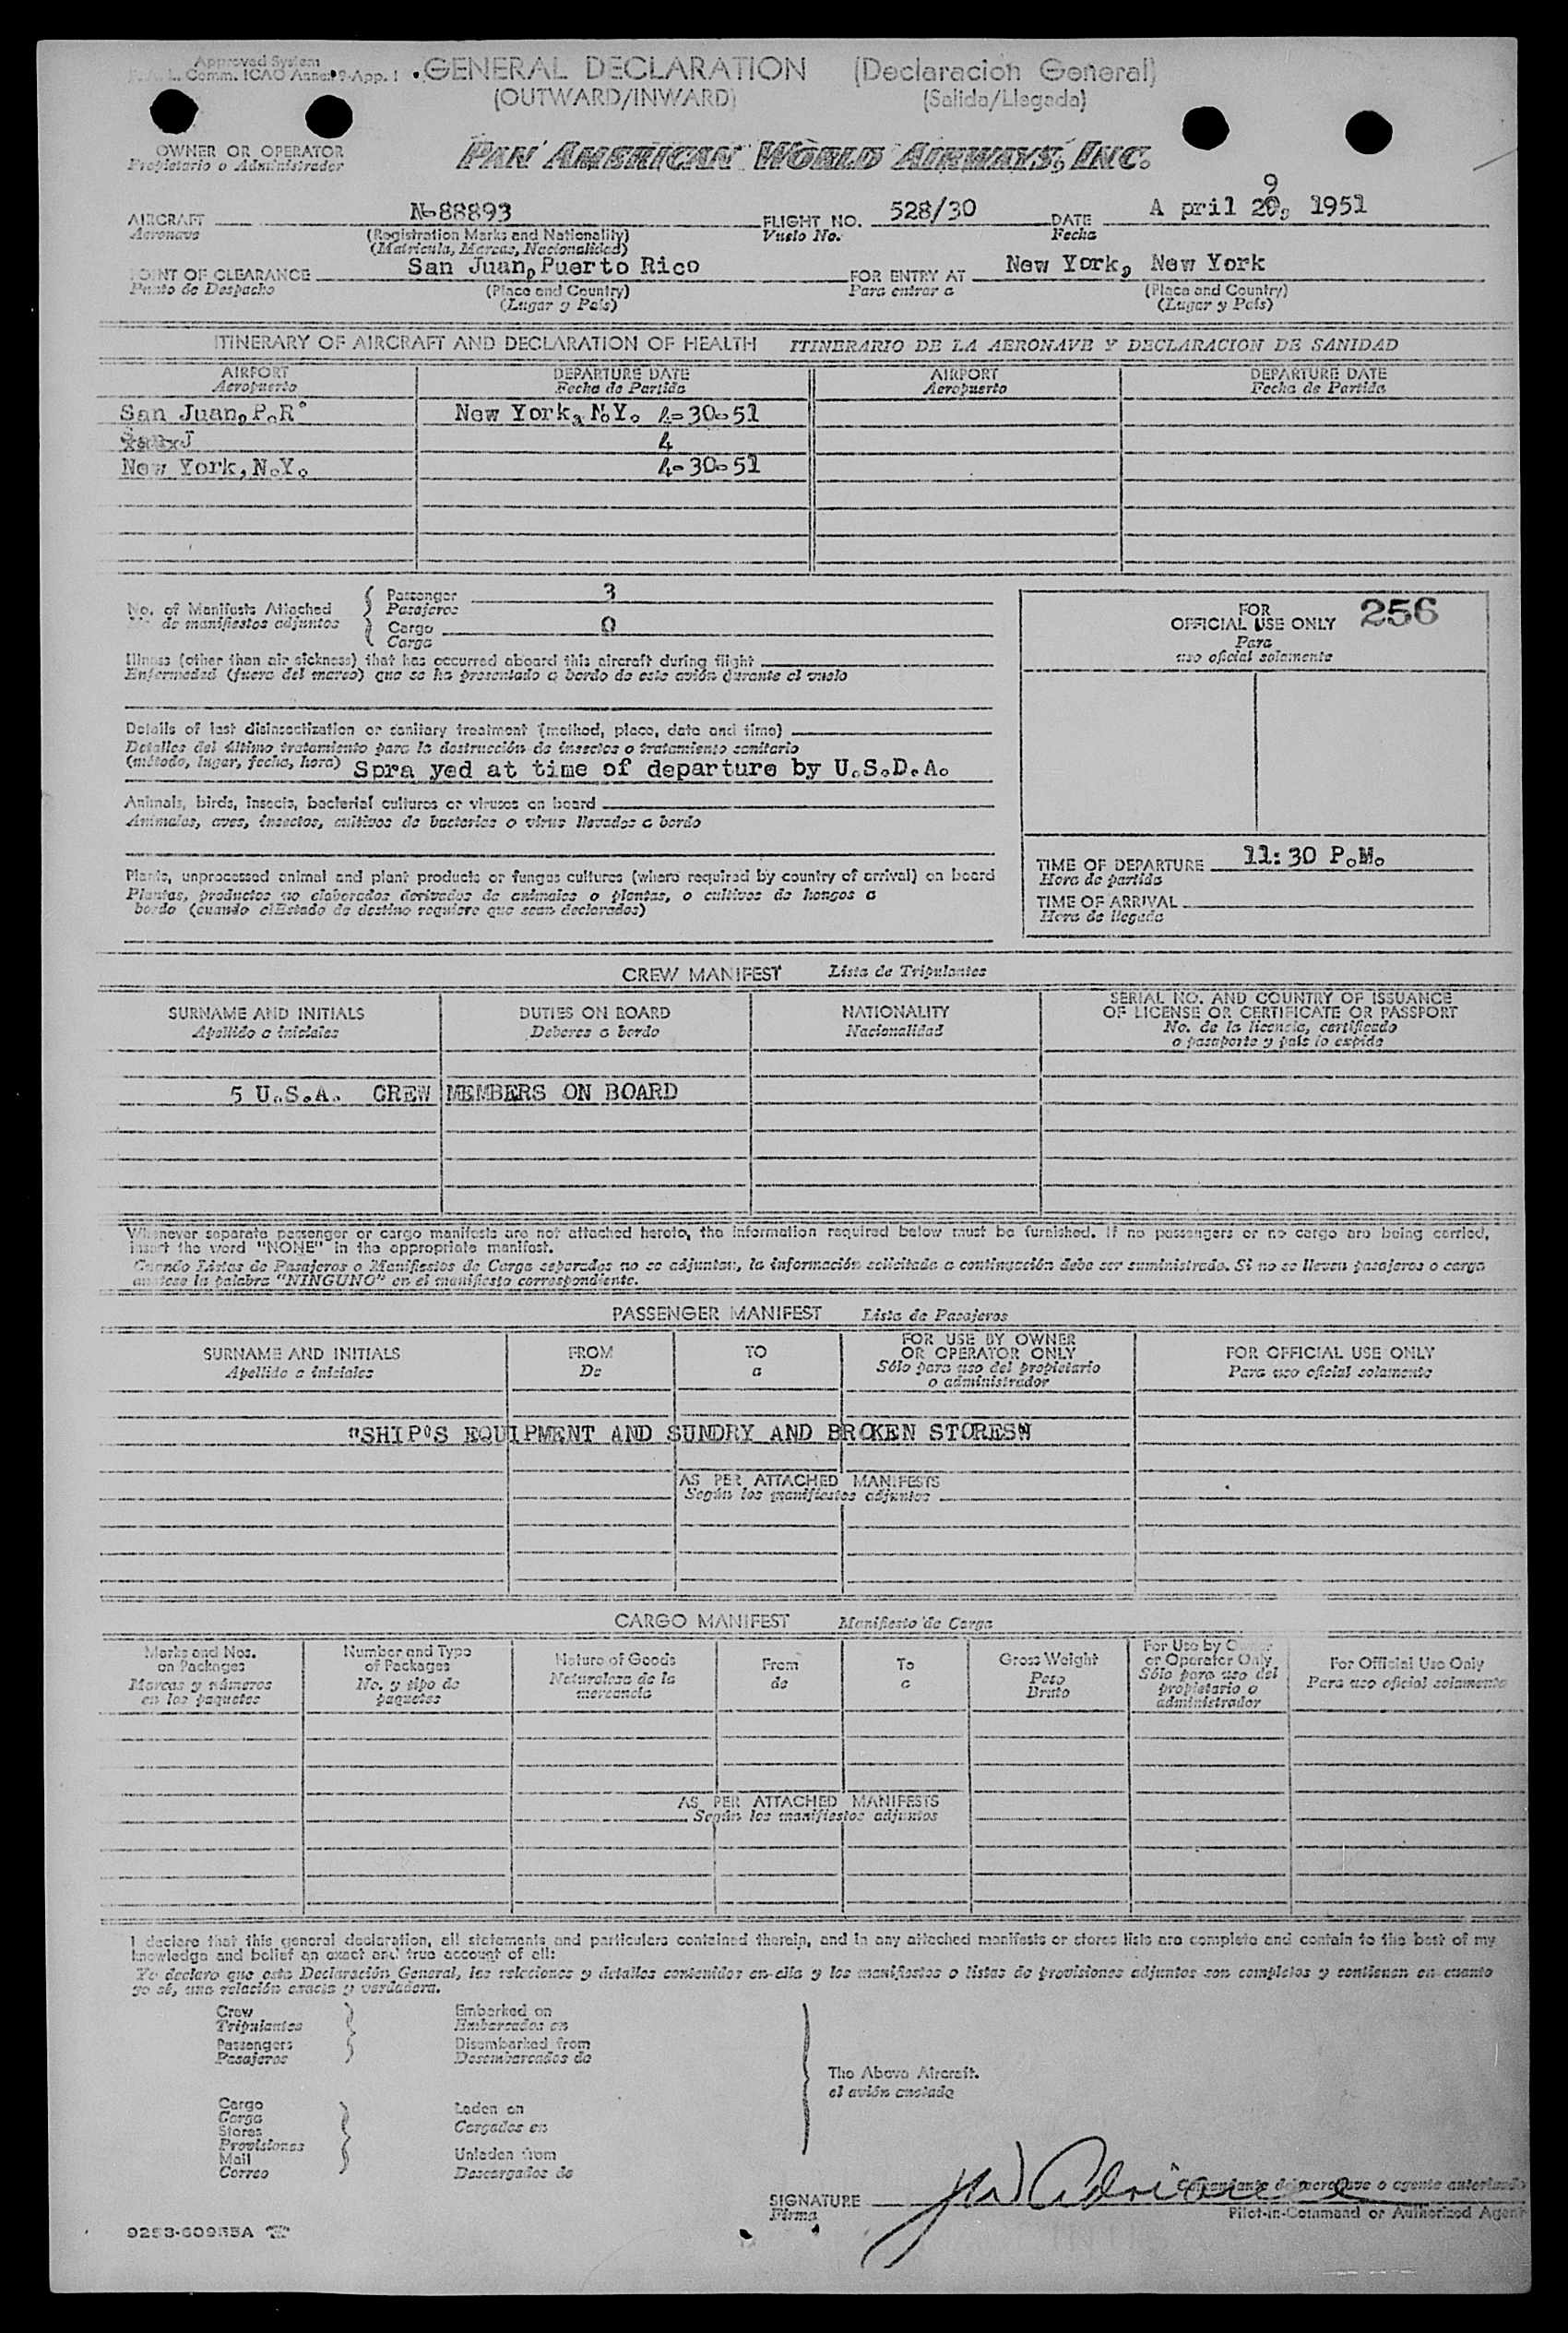 Approved System
Comm. ICAO Annex 9-App. 1
GENERAL DECLARATION (Declaracion General)
(OUTWARD/INWARD) (Salida/Llegada)
OWNER OR OPERATOR
Propietario o Administrador
PAN AMERICAN WORLD AIRWAYS, INC.
AIRCRAFT N-88893 FLIGHT NO. 528/30 DATE A pril 29, 1951
Aeronave (Registration Marks and Nationality) Vuelo No. Fecha
(Matricula, Marcas, Nacionalidad)
POINT OF CLEARANCE San Juan, Puerto Rico FOR ENTRY AT New York, New York
Punto de Despacho (Place and Country) Para entrar a (Place and Country)
(Lugar y País) (Lugar y País)
ITINERARY OF AIRCRAFT AND DECLARATION OF HEALTH ITINERARIO DE LA AERONAVE Y DECLARACION DE SANIDAD
AIRPORT DEPARTURE DATE AIRPORT DEPARTURE DATE
Aeropuerto Fecha de Partida Aeropuerto Fecha de Partida
San Juan, P.R. New York, N.Y. 4-30-51
San J 4
New York, N.Y. 4-30-51
No. of Manifests Attached
No. de manifiestos adjuntos
Passenger 3
Pasajeros
Cargo 0
Carga
FOR
OFFICIAL USE ONLY 256
Para
uso oficial solamente
Illness (other than air sickness) that has occurred aboard this aircraft during flight
Enfermedad (fuera del mareo) que se ha presentado a bordo de este avión durante el vuelo
Details of last disinsectization or sanitary treatment (method, place, date and time)
Detalles del último tratamiento para la destrucción de insectos o tratamiento sanitario
(método, lugar, fecha, hora) Spra yed at time of departure by U.S.D.A.
Animals, birds, insects, bacterial cultures or viruses on board
Animales, aves, insectos, cultivos de bacterias o virus llevados a bordo
Plants, unprocessed animal and plant products or fungus cultures (where required by country of arrival) on board
Plantas, productos no elaborados derivados de animales o plantas, o cultivos de hongos a
bordo (cuando el Estado de destino requiere que sean declarados)
TIME OF DEPARTURE 11:30 P.M.
Hora de partida
TIME OF ARRIVAL
Hora de llegada
CREW MANIFEST Lista de Tripulantes
SURNAME AND INITIALS DUTIES ON BOARD NATIONALITY SERIAL NO. AND COUNTRY OF ISSUANCE
OF LICENSE OR CERTIFICATE OR PASSPORT
Apellido e iniciales Deberes a bordo Nacionalidad No. de la licencia, certificado
o pasaporte y país lo expide
5 U.S.A. CREW MEMBERS ON BOARD
Whenever separate passenger or cargo manifests are not attached hereto, the information required below must be furnished. If no passengers or no cargo are being carried,
insert the word "NONE" in the appropriate manifest.
Cuando Listas de Pasajeros o Manifiestos de Carga separados no se adjuntan, la información solicitada a continuación debe ser suministrada. Si no se llevan pasajeros o carga
anotese la palabra "NINGUNO" en el manifiesto correspondiente.
PASSENGER MANIFEST Lista de Pasajeros
SURNAME AND INITIALS FROM TO FOR USE BY OWNER
OR OPERATOR ONLY FOR OFFICIAL USE ONLY
Apellido e iniciales De a Sólo para uso del propietario
o administrador Para uso oficial solamente
"SHIP'S EQUIPMENT AND SUNDRY AND BROKEN STORES"
AS PER ATTACHED MANIFESTS
Según los manifiestos adjuntos
CARGO MANIFEST Manifiesto de Carga
Marks and Nos.
on Packages
Marcas y números
en los paquetes
Number and Type
of Packages
No. y tipo de
paquetes
Nature of Goods
Naturaleza de la
mercancia
From
de
To
a
Gross Weight
Peso
Bruto
For Use by Owner
or Operator Only
Sólo para uso del
propietario o
administrador
For Official Use Only
Para uso oficial solamente
AS PER ATTACHED MANIFESTS
Según los manifiestos adjuntos
I declare that this general declaration, all statements and particulars contained therein, and in any attached manifests or stores lists are complete and contain to the best of my
knowledge and belief an exact and true account of all:
Yo declaro que esta Declaración General, las relaciones y detalles contenidos en ella y los manifiestos o listas de provisiones adjuntos son completos y contienen en cuanto
yo sé, una relación exacta y verdadera.
Crew
Tripulantes
Passengers
Pasajeros
Embarked on
Embarcados en
Disembarked from
Desembarcados de
The Above Aircraft.
el avión anotado
Cargo
Carga
Stores
Provisiones
Mail
Correo
Laden on
Cargados en
Unladen from
Descargados de
SIGNATURE
Firma
Comandante de aeronave o agente autorizado
Pilot-in-Command or Authorized Agent